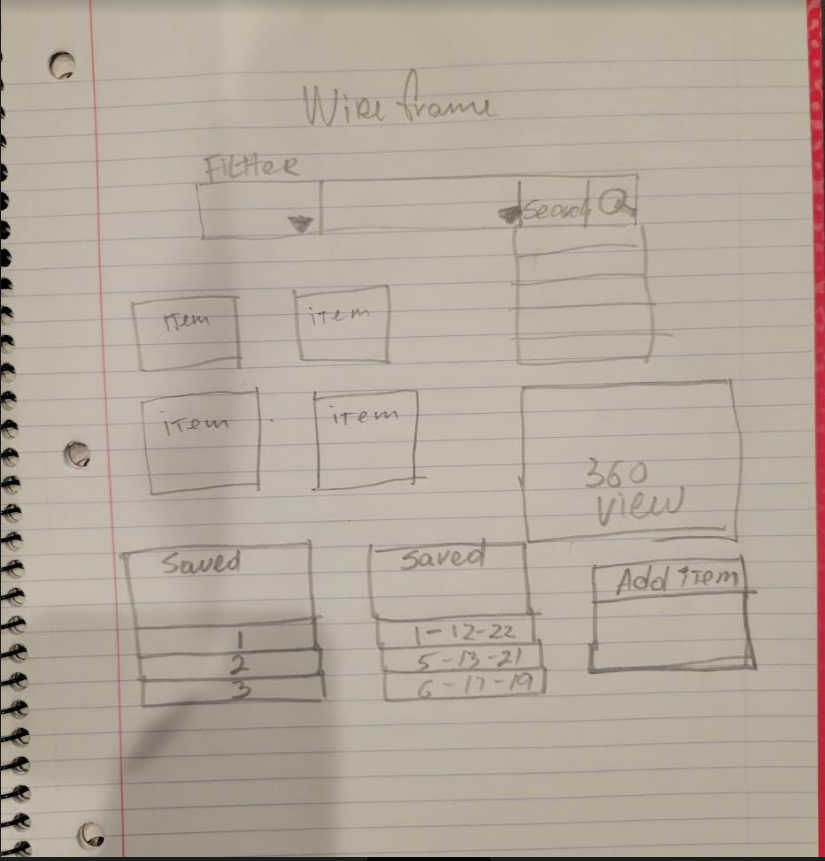 Wire frame
Filtter
Search
item
item
item
item
360
view
Saved
1
2
3
Saved
1-12-22
5-13-21
6-17-19
Add item